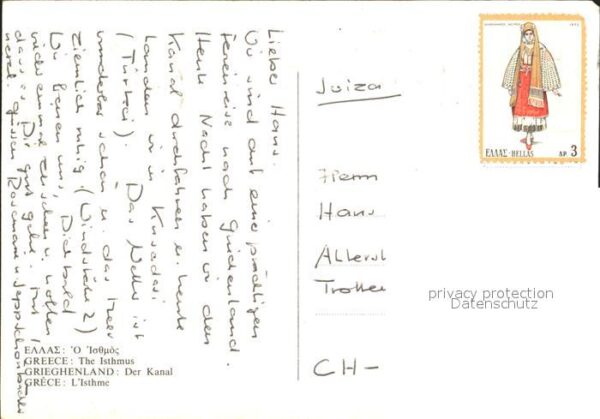 Lieber Hans.
Wir sind auf einer prächtigen
Ferienreise nach Griechenland.
Heute Nacht haben wir den
Kanal durchfahren u. heute
landen wir in Kusadasi
(Türkei). Das Wetter ist
wunderbar schön u. das Meer
ziemlich ruhig. (Windstärke 2)
Wir freuen uns, Dich bald
wieder einmal zu sehen u. hoffen,
dass es Dir gut geht. Mit
herzl. Grüssen Rosmarie u. Sepp
Svizzera
Herrn
Hans
CH-
ΕΛΛΑΣ-HELLAS ΔΡ 3
privacy protection
Datenschutz
ΕΛΛΑΣ: Ὁ Ἰσθμὸς
GREECE: The Isthmus
GRIEGHENLAND: Der Kanal
GRÉCE: L'Isthme